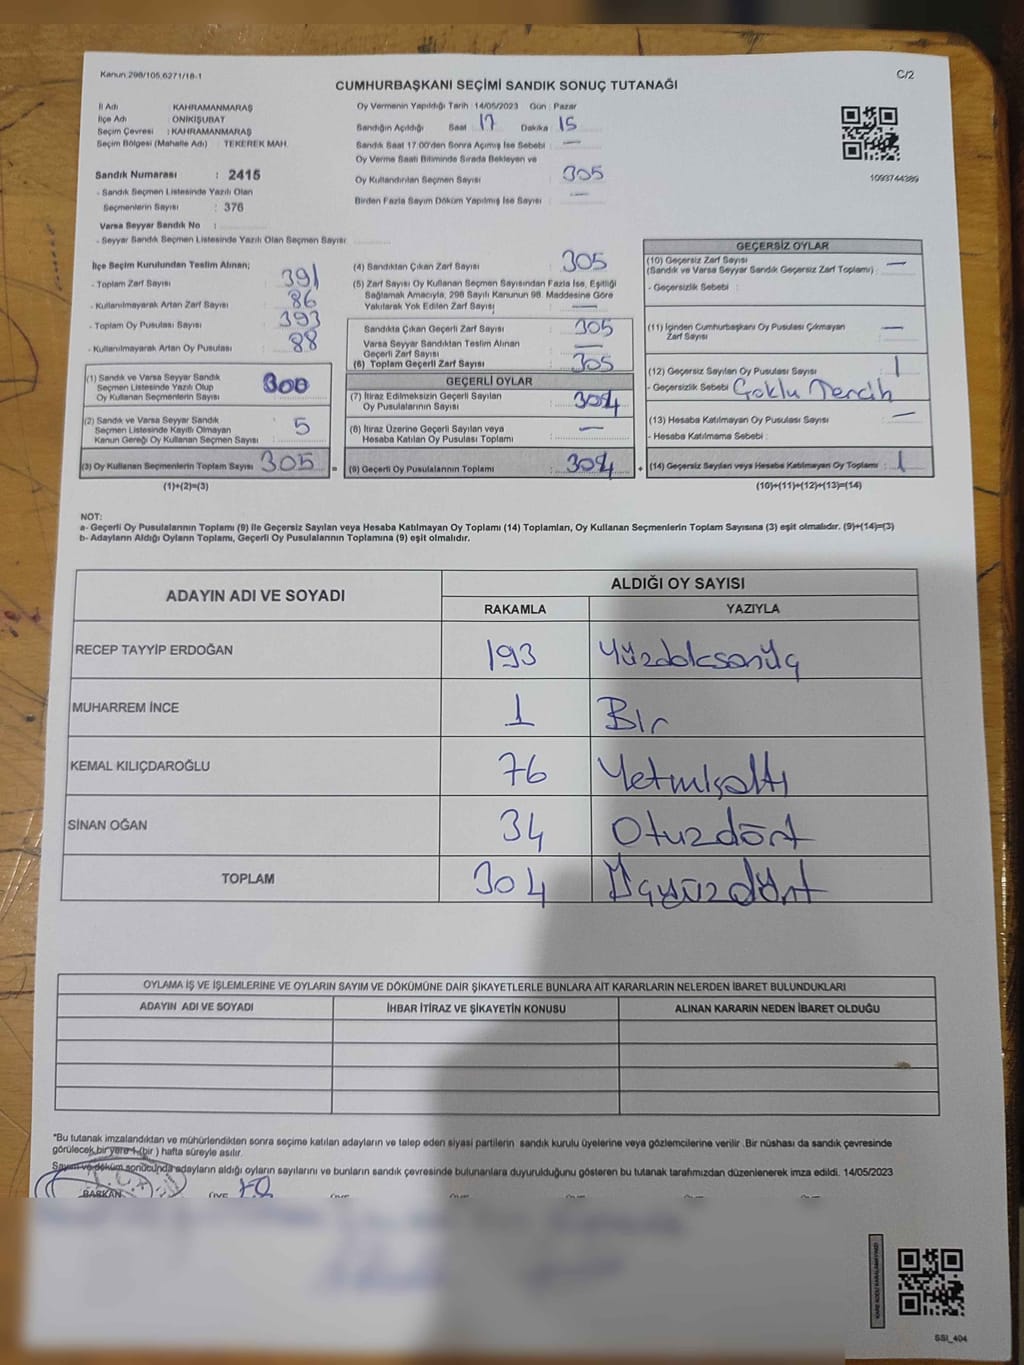 Kanun:298/105,6271/18-1
C/2
CUMHURBAŞKANI SEÇİMİ SANDIK SONUÇ TUTANAĞI
İl Adı : KAHRAMANMARAŞ
İlçe Adı : ONİKİŞUBAT
Seçim Çevresi : KAHRAMANMARAŞ
Seçim Bölgesi (Mahalle Adı) : TEKEREK MAH.
Sandık Numarası : 2415
- Sandık Seçmen Listesinde Yazılı Olan
Seçmenlerin Sayısı : 376
Varsa Seyyar Sandık No :
- Seyyar Sandık Seçmen Listesinde Yazılı Olan Seçmen Sayısı:
Oy Vermenin Yapıldığı Tarih : 14/05/2023 Gün : Pazar
Sandığın Açıldığı Saat 17 Dakika 15
Sandık Saat 17.00'den Sonra Açımış İse Sebebi : —
Oy Verme Saati Bitiminde Sırada Bekleyen ve
Oy Kullandırılan Seçmen Sayısı : 305
Birden Fazla Sayım Döküm Yapılmış İse Sayısı : —
1093744389
İlçe Seçim Kurulundan Teslim Alınan;
- Toplam Zarf Sayısı : 391
- Kullanılmayarak Artan Zarf Sayısı : 86
- Toplam Oy Pusulası Sayısı : 393
- Kullanılmayarak Artan Oy Pusulası : 88
(1) Sandık ve Varsa Seyyar Sandık
Seçmen Listesinde Yazılı Olup
Oy Kullanan Seçmenlerin Sayısı : 300
(2) Sandık ve Varsa Seyyar Sandık
Seçmen Listesinde Kayıtlı Olmayan
Kanun Gereği Oy Kullanan Seçmen Sayısı : 5
(3) Oy Kullanan Seçmenlerin Toplam Sayısı : 305
(1)+(2)=(3)
(4) Sandıktan Çıkan Zarf Sayısı : 305
(5) Zarf Sayısı Oy Kullanan Seçmen Sayısından Fazla İse, Eşitliği
Sağlamak Amacıyla, 298 Sayılı Kanunun 98. Maddesine Göre
Yakılarak Yok Edilen Zarf Sayısı : —
Sandıkta Çıkan Geçerli Zarf Sayısı : 305
Varsa Seyyar Sandıktan Teslim Alınan
Geçerli Zarf Sayısı : —
(6) Toplam Geçerli Zarf Sayısı : 305
GEÇERLİ OYLAR
(7) İtiraz Edilmeksizin Geçerli Sayılan
Oy Pusulalarının Sayısı : 304
(8) İtiraz Üzerine Geçerli Sayılan veya
Hesaba Katılan Oy Pusulası Toplamı : —
= (9) Geçerli Oy Pusulalarının Toplamı : 304 +
GEÇERSİZ OYLAR
(10) Geçersiz Zarf Sayısı
(Sandık ve Varsa Seyyar Sandık Geçersiz Zarf Toplamı) : —
- Geçersizlik Sebebi :
(11) İçinden Cumhurbaşkanı Oy Pusulası Çıkmayan
Zarf Sayısı : —
(12) Geçersiz Sayılan Oy Pusulası Sayısı : 1
- Geçersizlik Sebebi : Çoklu Tercih
(13) Hesaba Katılmayan Oy Pusulası Sayısı : —
- Hesaba Katılmama Sebebi :
(14) Geçersiz Sayılan veya Hesaba Katılmayan Oy Toplamı : 1
(10)+(11)+(12)+(13)=(14)
NOT:
a- Geçerli Oy Pusulalarının Toplamı (9) ile Geçersiz Sayılan veya Hesaba Katılmayan Oy Toplamı (14) Toplamları, Oy Kullanan Seçmenlerin Toplam Sayısına (3) eşit olmalıdır. (9)+(14)=(3)
b- Adayların Aldığı Oyların Toplamı, Geçerli Oy Pusulalarının Toplamına (9) eşit olmalıdır.
ADAYIN ADI VE SOYADI
ALDIĞI OY SAYISI
RAKAMLA YAZIYLA
RECEP TAYYİP ERDOĞAN 193 Yüzdoksanüç
MUHARREM İNCE 1 Bir
KEMAL KILIÇDAROĞLU 76 Yetmişaltı
SİNAN OĞAN 34 Otuzdört
TOPLAM 304 Üçyüzdört
OYLAMA İŞ VE İŞLEMLERİNE VE OYLARIN SAYIM VE DÖKÜMÜNE DAİR ŞİKAYETLERLE BUNLARA AİT KARARLARIN NELERDEN İBARET BULUNDUKLARI
ADAYIN ADI VE SOYADI İHBAR İTİRAZ VE ŞİKAYETİN KONUSU ALINAN KARARIN NEDEN İBARET OLDUĞU
"Bu tutanak imzalandıktan ve mühürlendikten sonra seçime katılan adayların ve talep eden siyasi partilerin sandık kurulu üyelerine veya gözlemcilerine verilir .Bir nüshası da sandık çevresinde
görülecek bir yere 1 (bir ) hafta süreyle asılır.
Sayım ve döküm sonucunda adayların aldığı oyların sayılarını ve bunların sandık çevresinde bulunanlara duyurulduğunu gösteren bu tutanak tarafımızdan düzenlenerek imza edildi. 14/05/2023
BAŞKAN ÜYE ÜYE ÜYE ÜYE ÜYE ÜYE
SSI_404